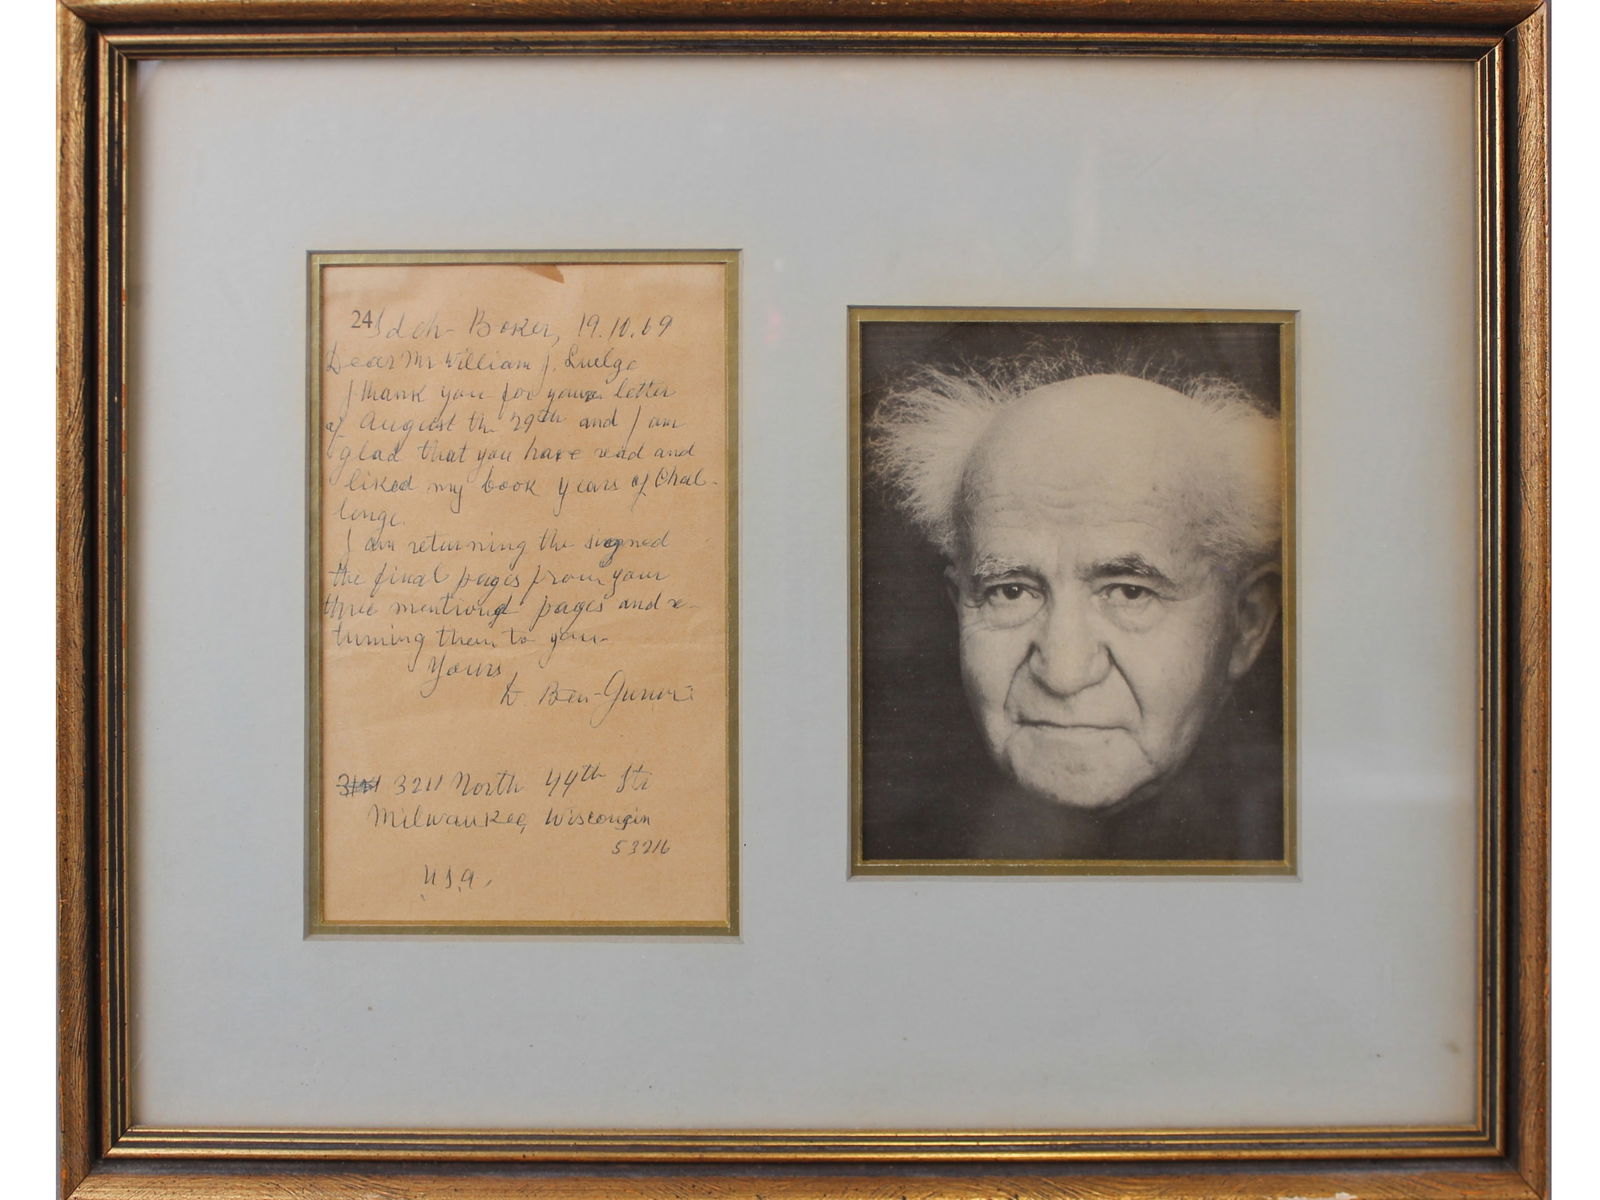 24 Sdeh-Boker, 19.10.69
Dear Mr William J.
I thank you for your letter
of August the 29th and I am
glad that you have read and
liked my book Years of Chal-
lenge.
I am returning the signed
the final pages from your
three mentiond pages and re-
turning them to you.
Yours
D. Ben-Gurion
3211 North 44th Str
Milwaukee, Wisconsin
53216
U.S.A.